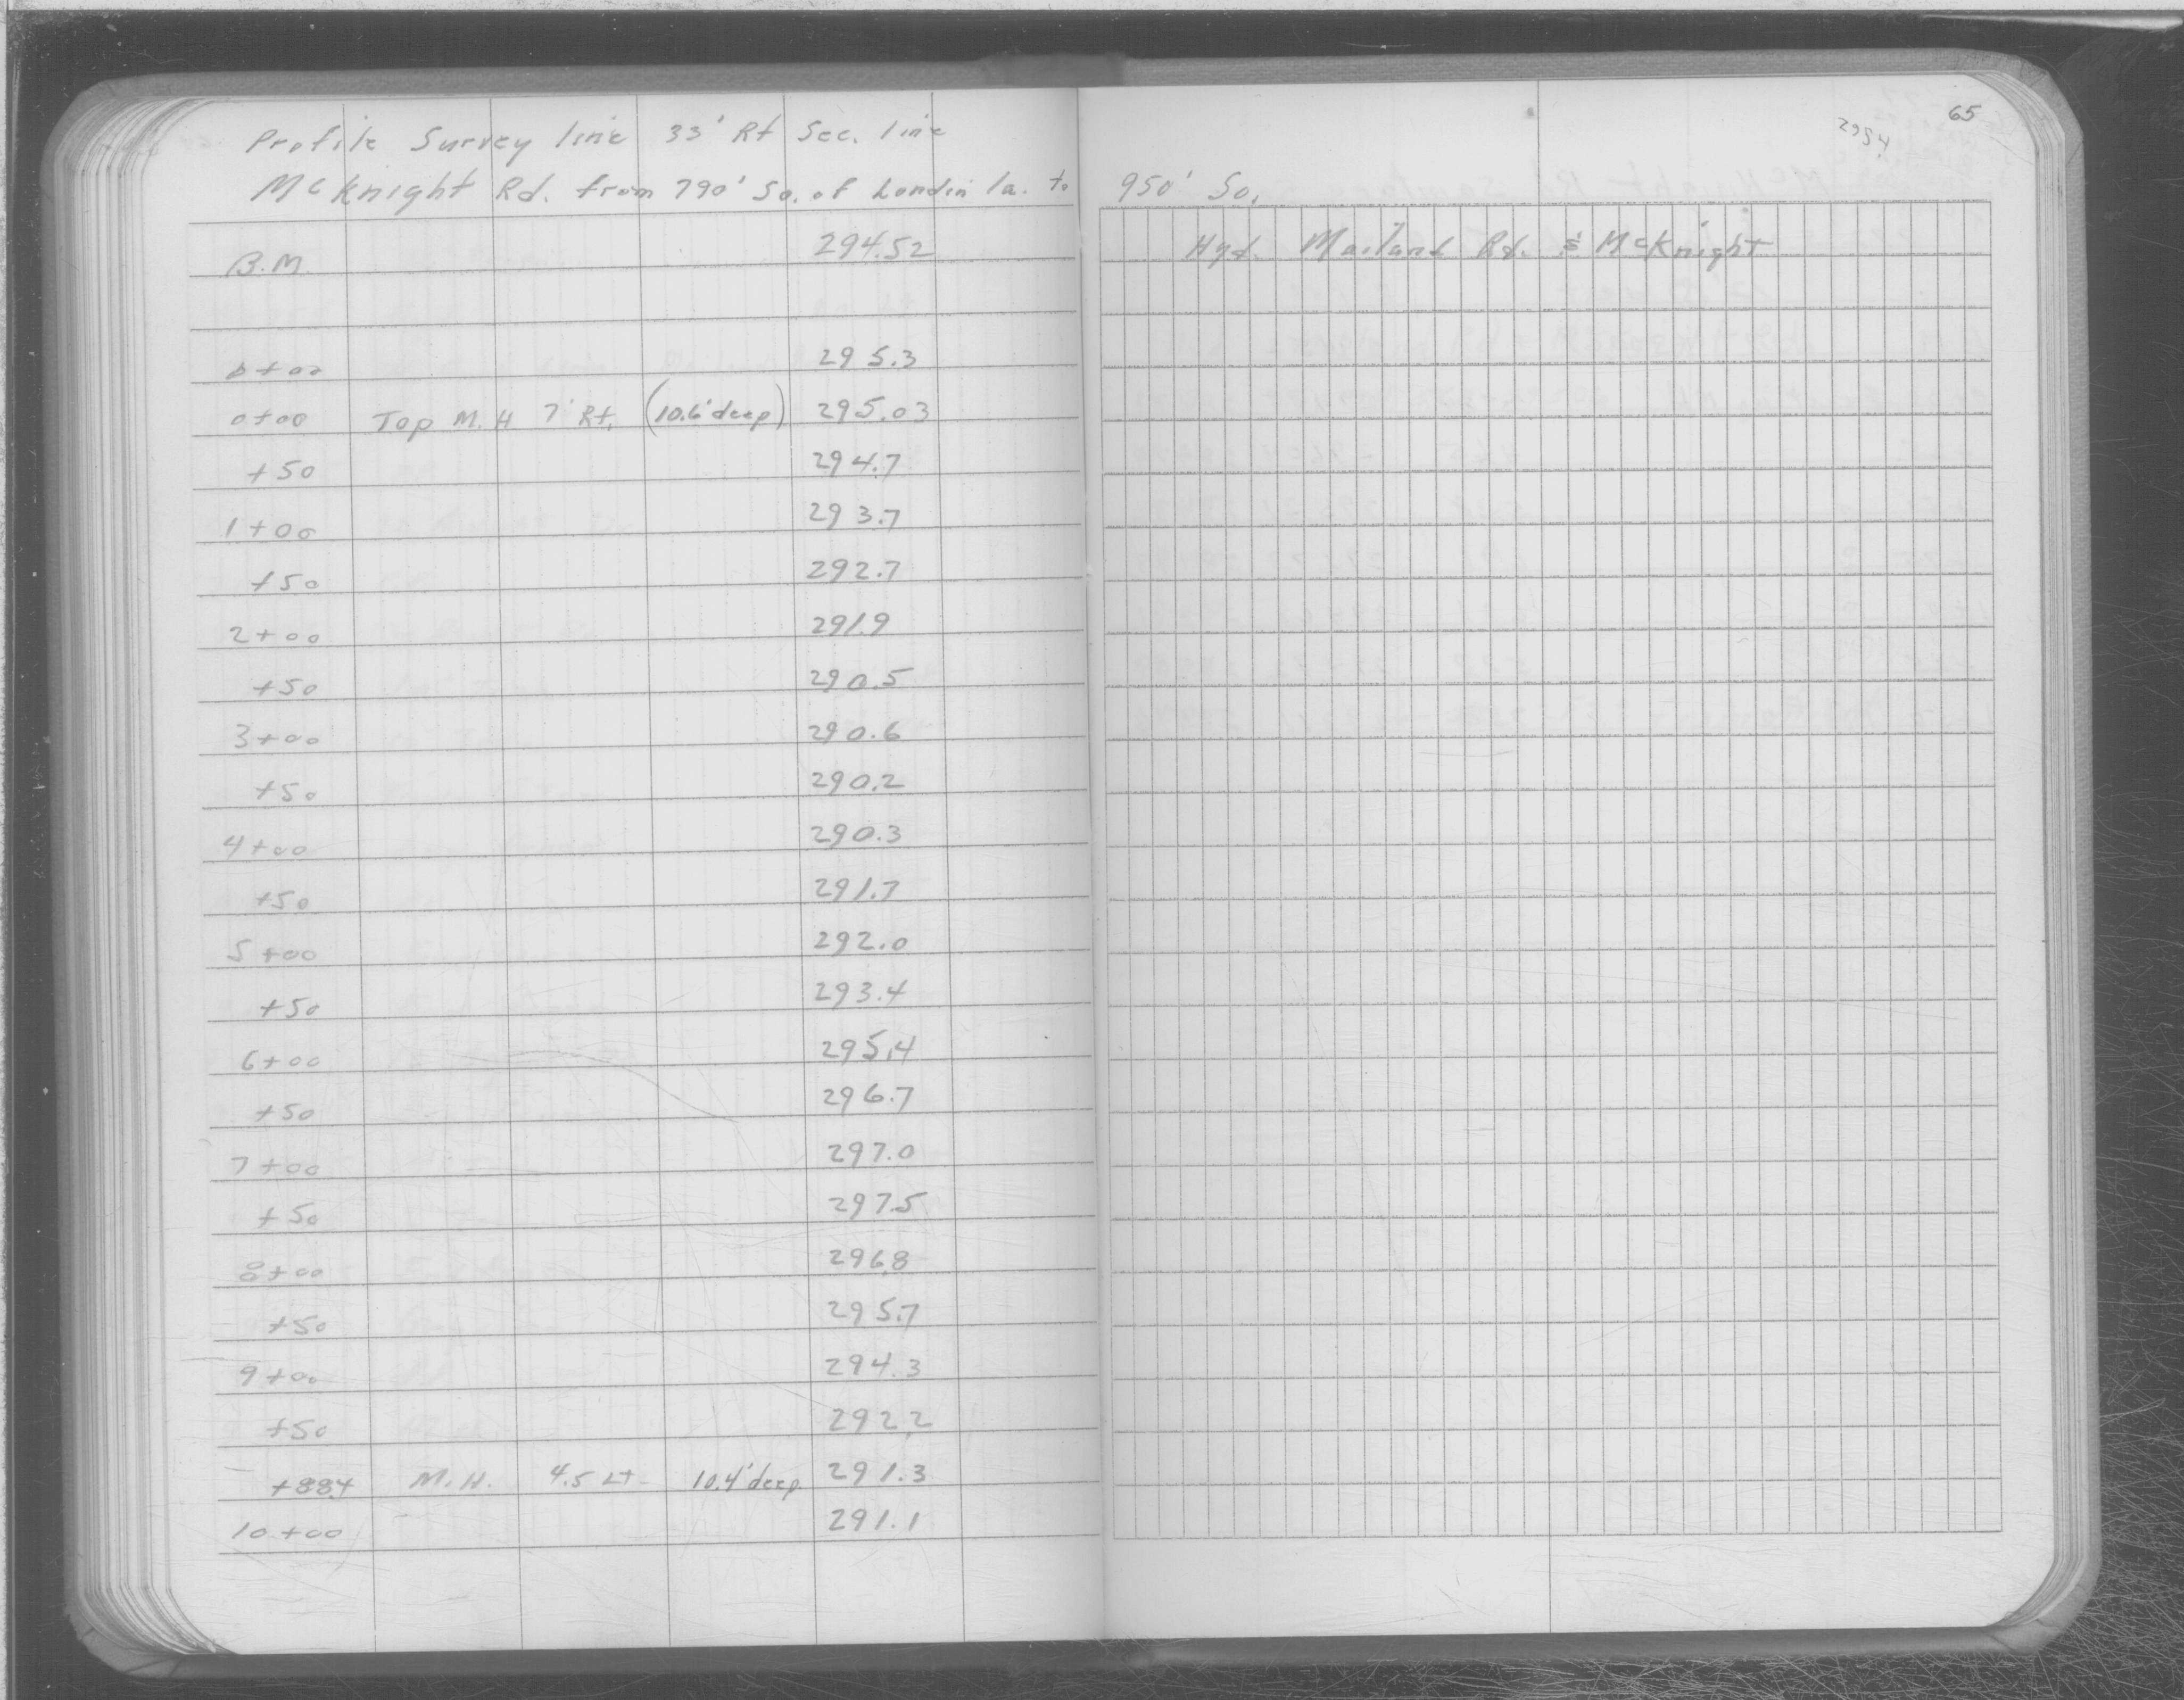 65
2954
Profile Survey line 33' Rt Sec. line
McKnight Rd. from 790' So. of Londin la. to 950' So.
B.M. 294.52 Hyd. Mailand Rd. & McKnight
0+00 295.3
0+00 Top M.H 7' Rt. (10.6' deep) 295.03
+50 294.7
1+00 293.7
+50 292.7
2+00 291.9
+50 290.5
3+00 290.6
+50 290.2
4+00 290.3
+50 291.7
5+00 292.0
+50 293.4
6+00 295.4
+50 296.7
7+00 297.0
+50 297.5
8+00 296.8
+50 295.7
9+00 294.3
+50 292.2
+88.4 M.H. 4.5 Lt 10.4' deep. 291.3
10+00 291.1